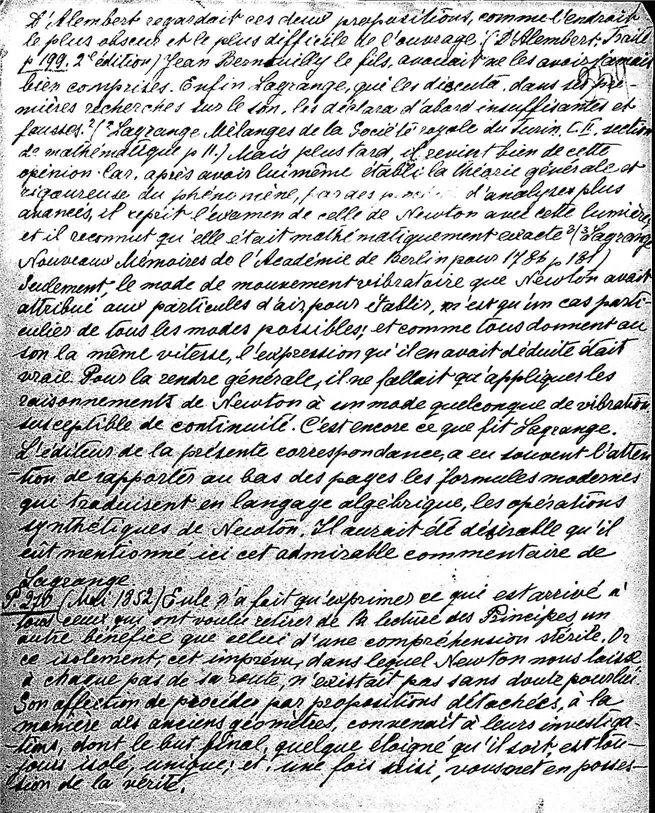 D'Alembert regardait ces deux propositions, comme l'endroit
le plus obscur et le plus difficile de l'ouvrage. (D'Alembert. Traité
p 199. 2e édition) Jean Bernouilly le fils, avouait ne les avoir jamais
bien comprises. Enfin Lagrange, qui les discuta, dans ses pre-
mières recherches sur le son, les déclara d'abord insuffisantes et
fausses.² (² Lagrange Mélanges de la Société royale du Turin, t. II, section
de mathématique p 11.) Mais plus tard, il revint bien de cette
opinion. Car, après avoir lui même établi la théorie générale et
rigoureuse du phénomène, par des d'analyse plus
avancés, il reprit l'examen de celle de Newton avec cette lumière
et il reconnut qu'elle était mathématiquement exacte ³ (³ Lagrange
Nouveaux Mémoires de l'Académie de Berlin pour 1786 p 181)
Seulement, le mode de mouvement vibratoire que Newton avait
attribué aux particules d'air, pour établir, n'est qu'un cas parti-
culier de tous les modes possibles; et comme tous donnent au
son la même vitesse, l'expression qu'il en avait déduite était
vraie. Pour la rendre générale, il ne fallait qu'appliquer les
raisonnements de Newton à un mode quelconque de vibration,
susceptible de continuité. C'est encore ce que fit Lagrange.
L'éditeur de la présente correspondance, a eu souvent l'atten-
-tion de rapporter au bas des pages les formules modernes
qui traduisent en langage algébrique, les opérations
synthétiques de Newton. Il aurait été désirable qu'il
eût mentionné ici cet admirable commentaire de
Lagrange
P. 276 (Mai 1852) Eule n'a fait qu'exprimer ce qui est arrivé à
tous ceux qui ont voulu retirer de la lecture des Principes, un
autre bénéfice que celui d'une compréhension stérile. Or
ce isolement, cet imprévu, dans lequel Newton nous laisse
à chaque pas de sa route, n'existait pas sans doute pour lui
Son affection de procéder par propositions détachées, à la
manière des anciens géomètres, convenait à leurs investiga-
-tions, dont le but final, quelque éloigné qu'il soit, est tou-
jours isolé, unique; et, une fois saisi, vous met en posses-
-sion de la vérité.